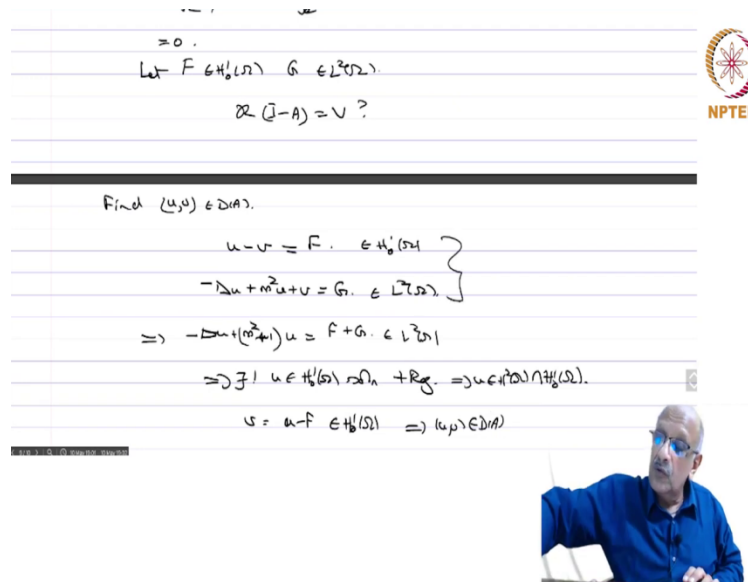 =0.
Let F ∈ H₀¹(Ω) G ∈ L²(Ω).
R (I-A) = V ?
NPTE
Find (u,v) ∈ D(A).
u-v = F. ∈ H₀¹(Ω)
-Δu + m²u + v = G. ∈ L²(Ω).
=> -Δu + (m²+1) u = F + G. ∈ L²(Ω)
=> ∃! u ∈ H₀¹(Ω) soln + Reg. => u ∈ H²(Ω) ∩ H₀¹(Ω).
v = u-F ∈ H₀¹(Ω) => (u,v) ∈ D(A)